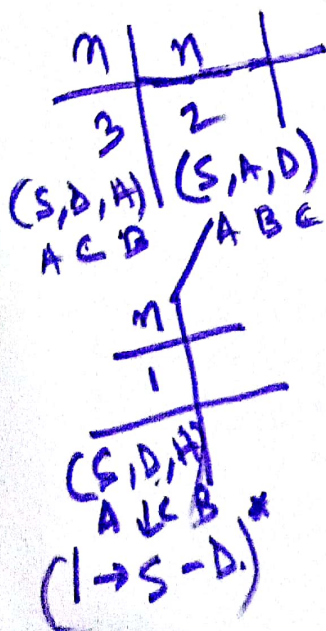 n n
3 2
(S,D,A) (S,A,D)
A C B A B C
n
1
(S,D,A)
A ↓C B
(1→S-D.)*